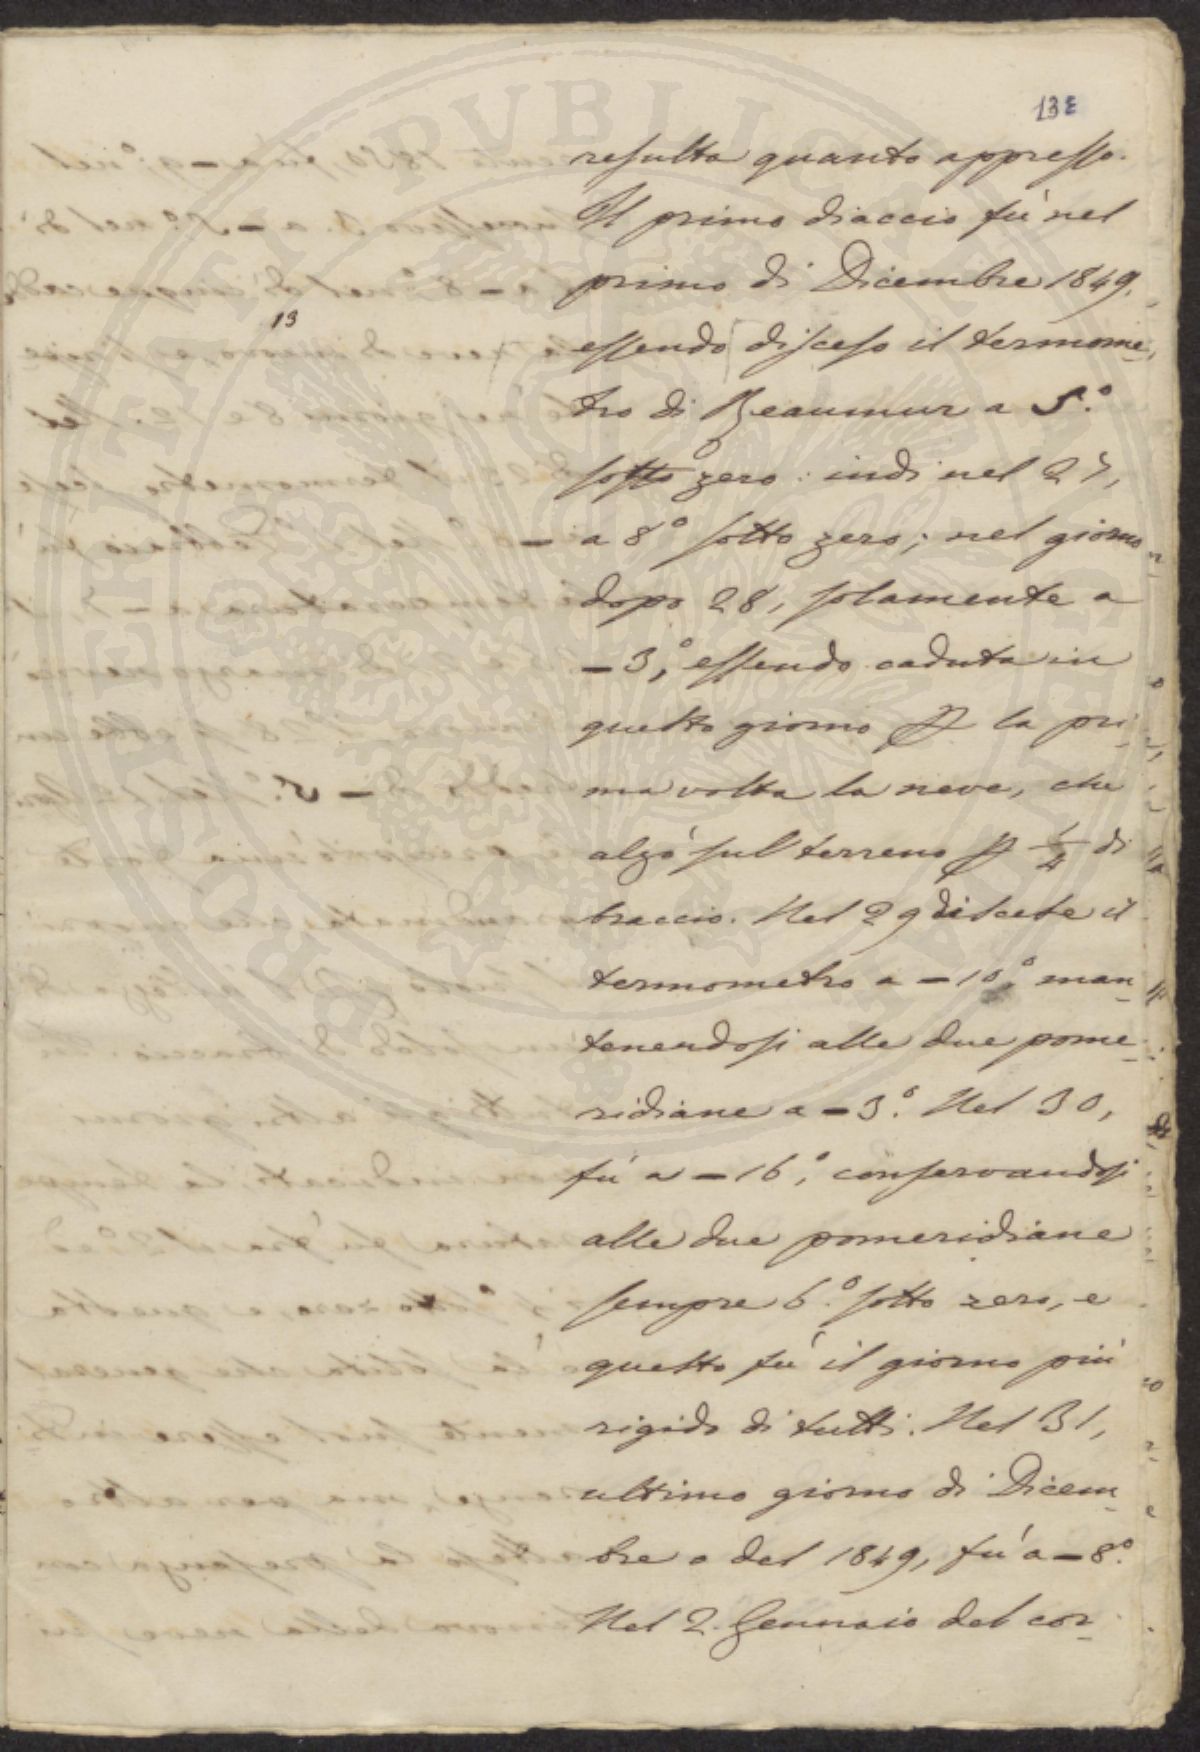 135
resulta quanto appresso.
Il primo diaccio fù nel
primo di Dicembre 1849,
19
essendo disceso il termome-
tro di Reaumur a 5.°
sotto zero: indi nel 27,
a 8° sotto zero; nel giorno
dopo 28, solamente a
-3,° essendo caduta in
questo giorno p la pri-
ma volta la neve, che
alzò sul terreno p 1/4 di
braccio. Nel 29 discese il
termometro a -10,° man-
tenendosi alle due pome-
ridiane a -3.° Nel 30,
fù a -16,° conservandosi
alle due pomeridiane
sempre 6.° sotto zero, e
questo fù il giorno più
rigido di tutti. Nel 31,
ultimo giorno di Dicem-
bre e del 1849, fù a -8.°
Nel 2. Gennaio del cor-